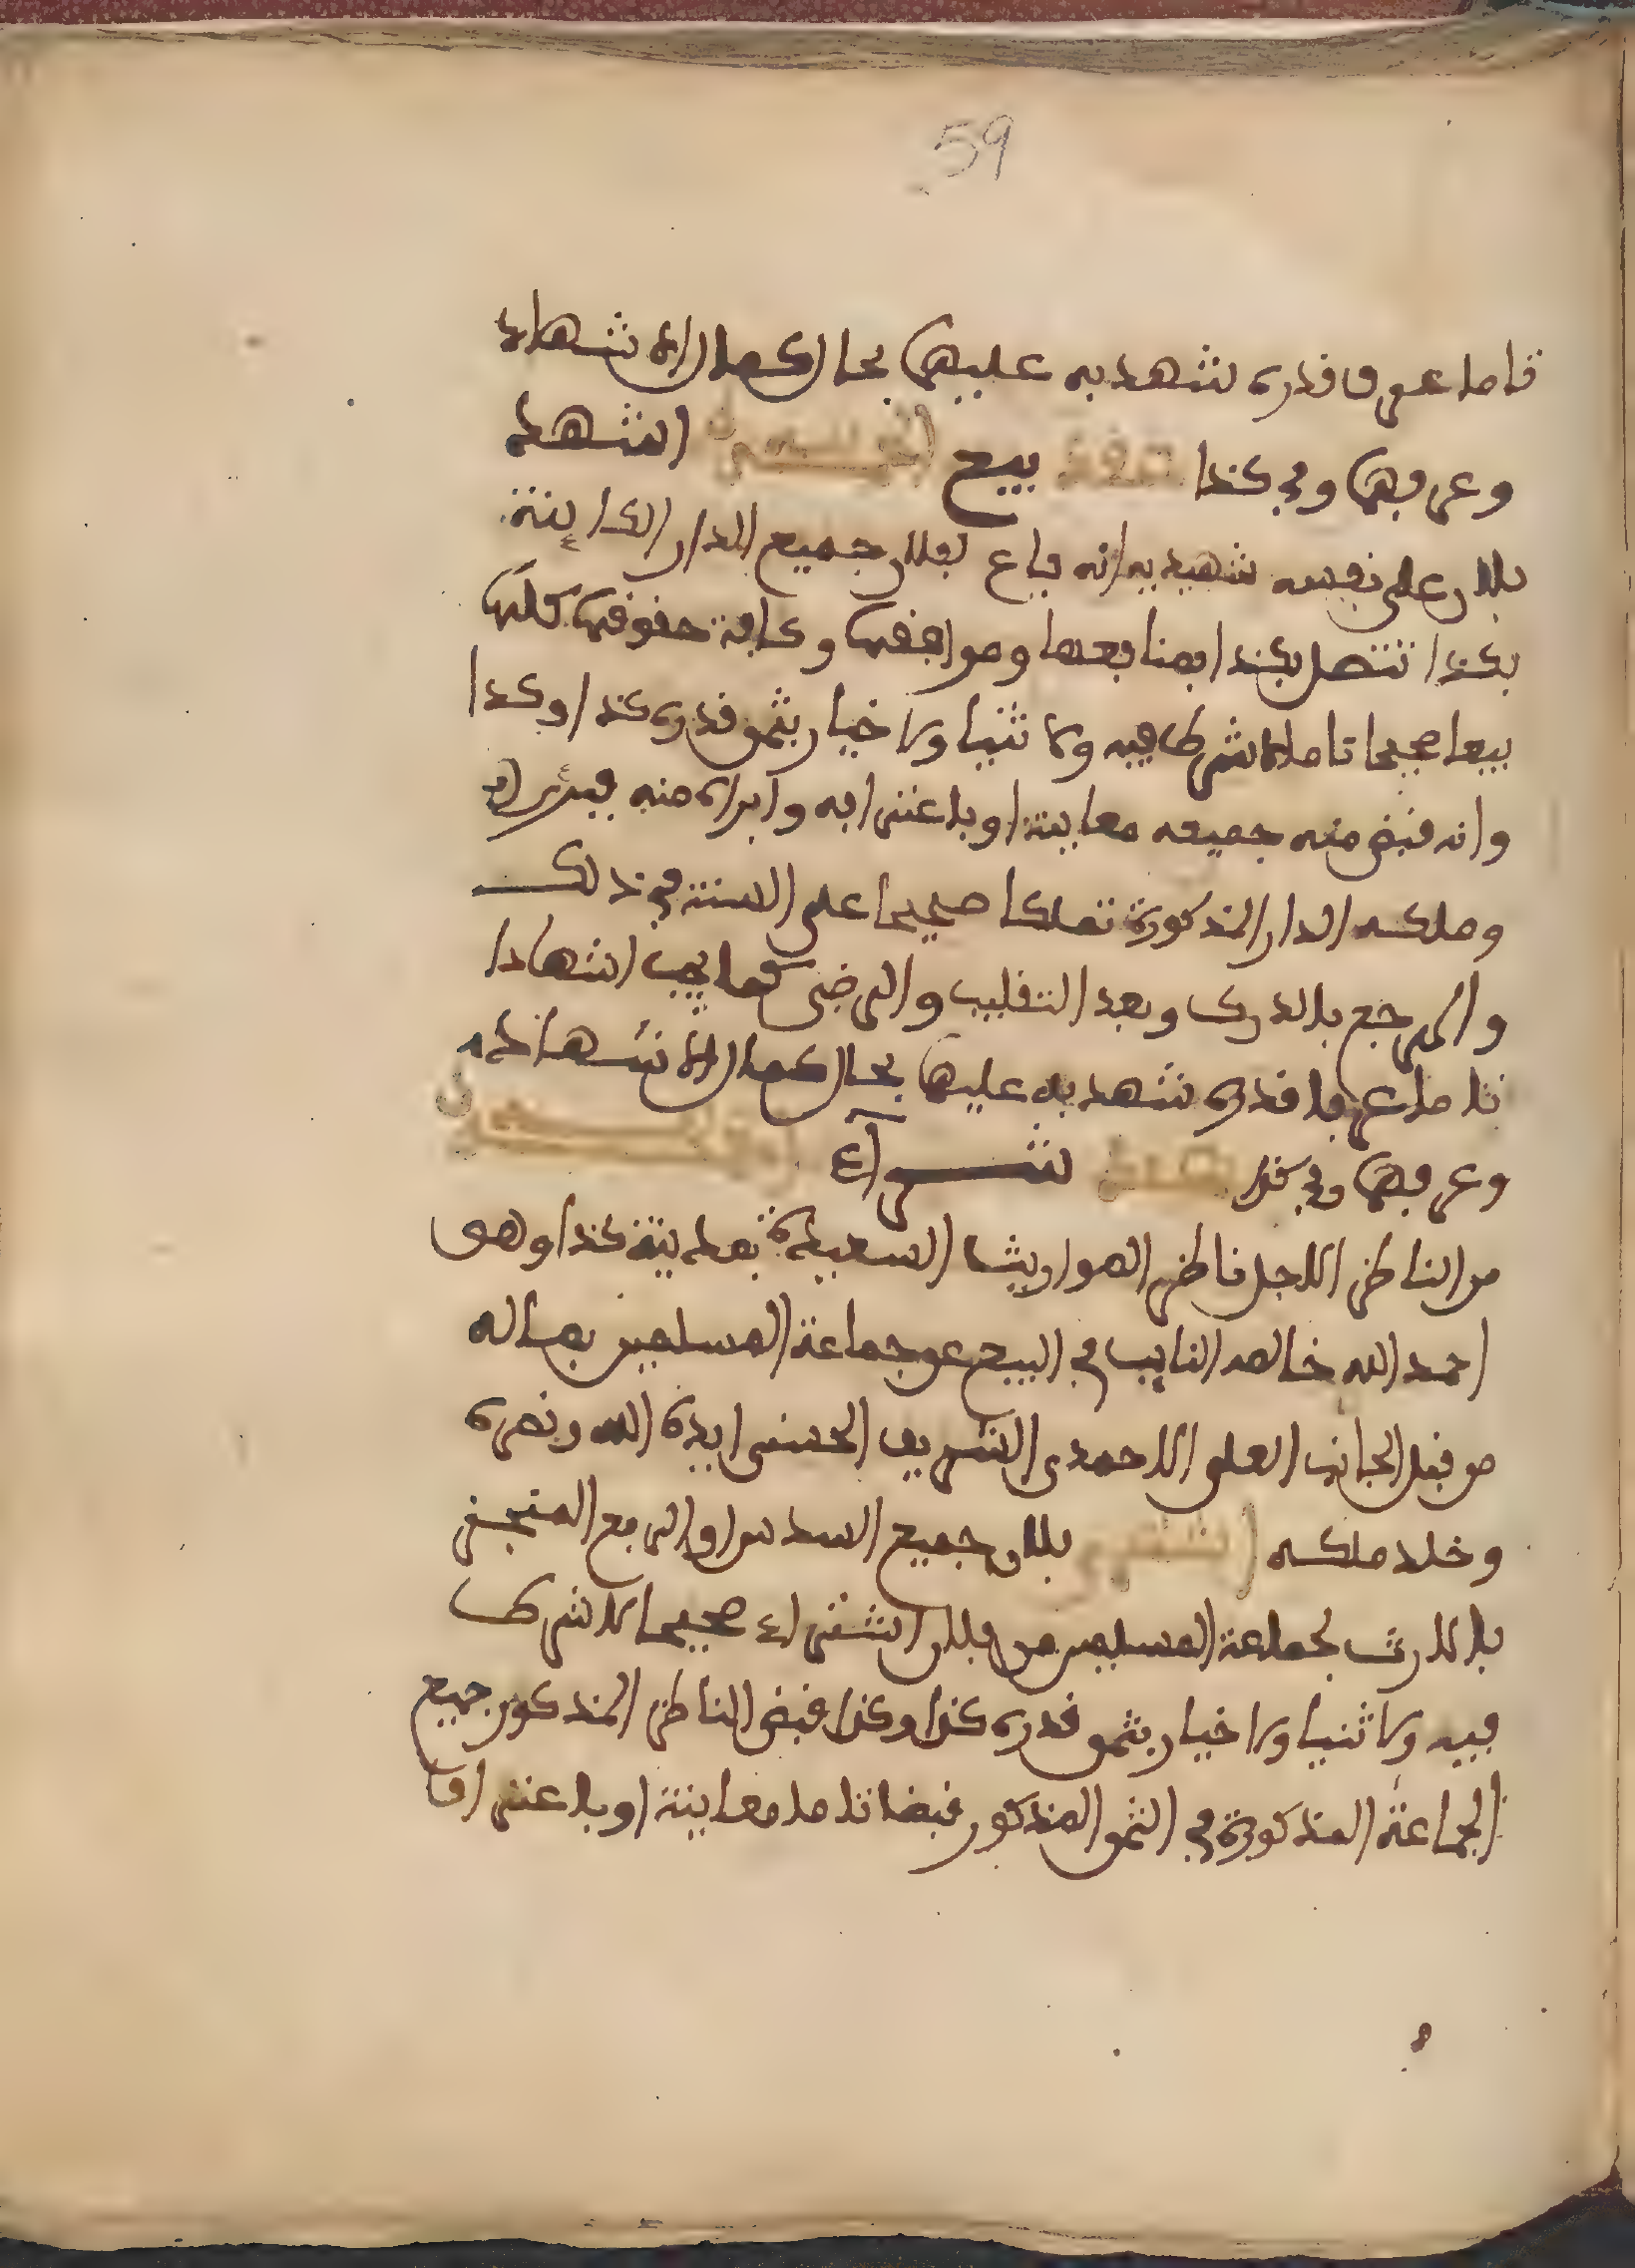 59
تاما عرفا قدره شهد به عليهما بحال كمال الاشهاد
وعرفهما وفي كذا عقد بيع اشهد
فلان على نفسه شهيديه انه باع لفلان جميع الدار الكاينة
بكذا تتصل بكذا بمنافعها ومرافقها وكافة حقوقها كلها
بيعا صحيحا تاما لا شرط فيه ولا ثنيا ولا خيار بثمن قدره كذا وكذا
وانه قبض منه جميعه معاينة او باعترافه وابراه منه فبرئ
وملكه الدار المذكورة تملكا صحيحا على السنة في ذلك
والمرجع بالدرك وبعد التقليب والرضى كما يجب اشهادا
تاما عرفا قدره شهد به عليهما بحال كمال الاشهاد
وعرفهما وفي كذا عقد شراء
من الناظر الاجل ناظر المواريث السعيدة بمدينة كذا وهو
احمد الله خالصه النايب في البيع عن جماعة المسلمين بماله
من قبل الجانب العلي الاحمدي الشريف الحسني ايده الله ونصره
وخلد ملكه اشترى فلان جميع السدس او الربع المنجر
بالارث لجماعة المسلمين من فلان اشتراء صحيحا لا شرط
فيه ولا ثنيا ولا خيار بثمن قدره كذا وكذا قبض الناظر المذكور جميع
الجماعة المذكورة في الثمن المذكور قبضا تاما معاينة او باعتراف